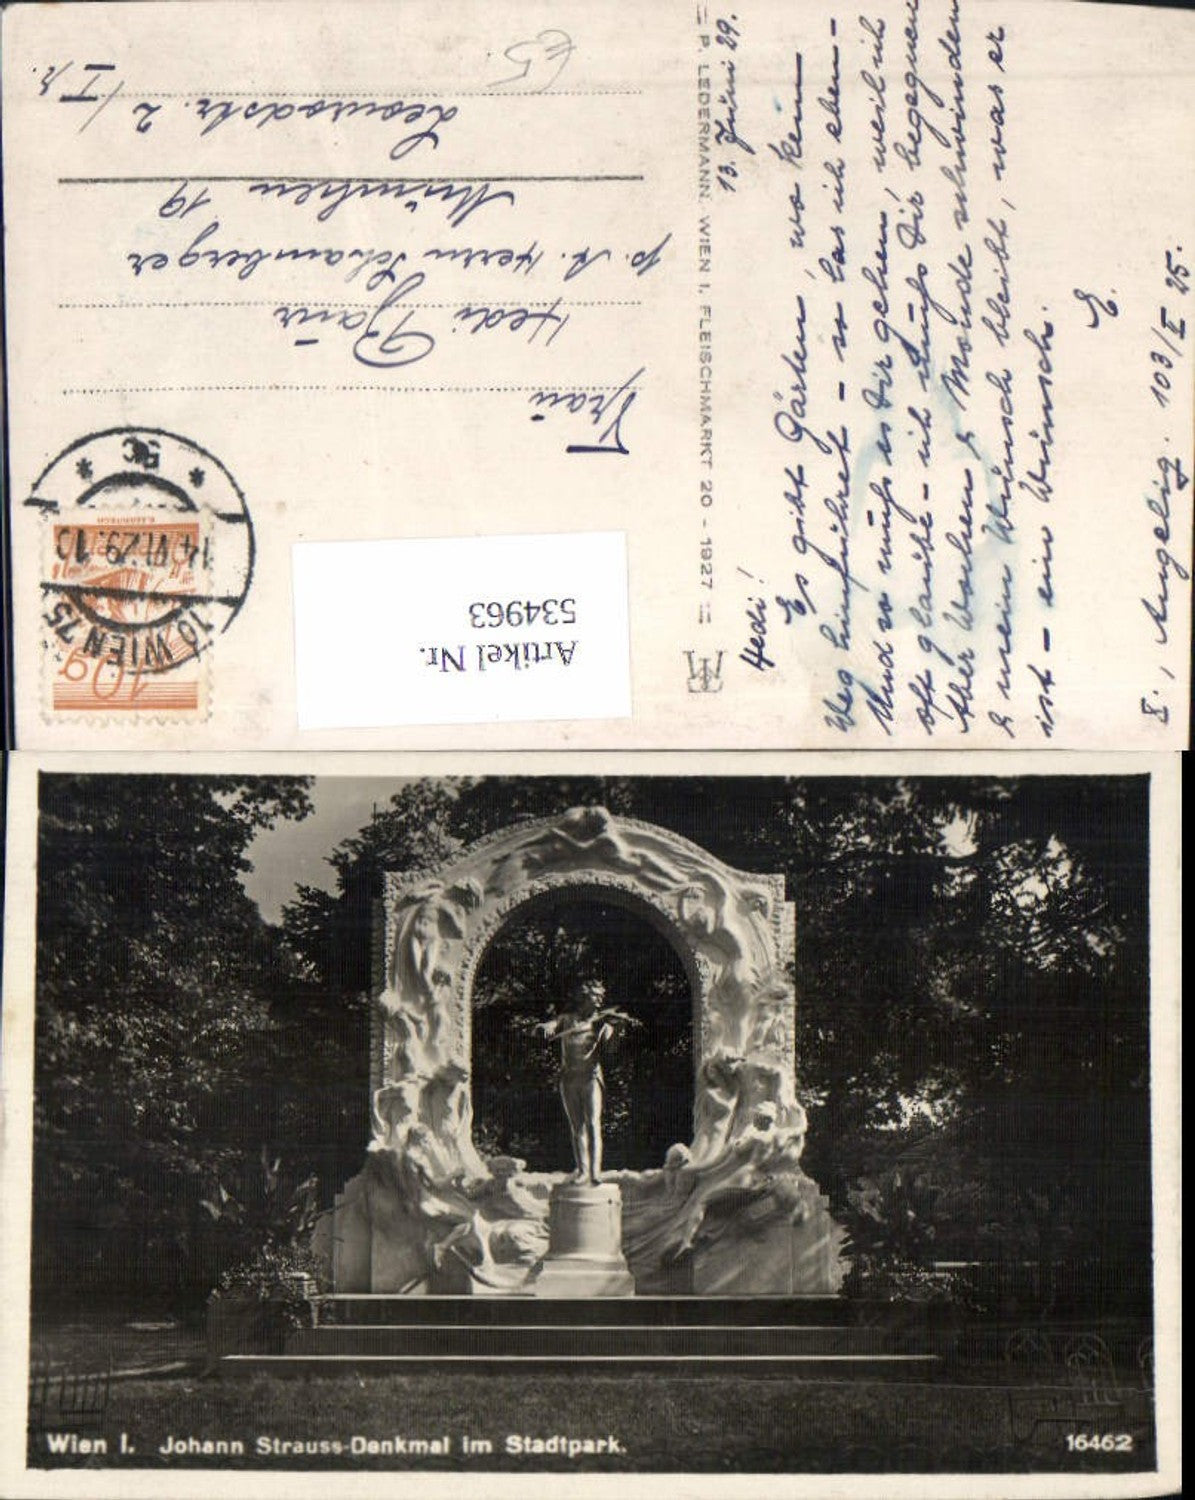 13. Juni 29.
Hedi!
Es gibt Gärten, wo kein
Weg hinführet – so las ich eben –
Und so muß es Dir gehen, weil ich
oft glaube – ich muß Dir begegnen
Aber Wochen & Monde schwinden
& mein Wunsch bleibt, was er
ist – ein Wunsch.
E.
X., Angelig. 103/I 25.
= P. LEDERMANN, WIEN I, FLEISCHMARKT 20 - 1927 =
Frau
Hedi Bair
p. A. Herrn Schamberger
München 19
Leonrodstr. 2/I r.
€5.
10 WIEN 75
14.VI.29.10
* 5c *
10g
Artikel Nr.
534963
Wien I. Johann Strauss-Denkmal im Stadtpark.
16462